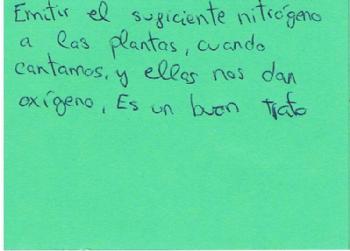 Emitir el suficiente nitrógeno
a las plantas, cuando
cantamos, y ellas nos dan
oxígeno, Es un buen trato